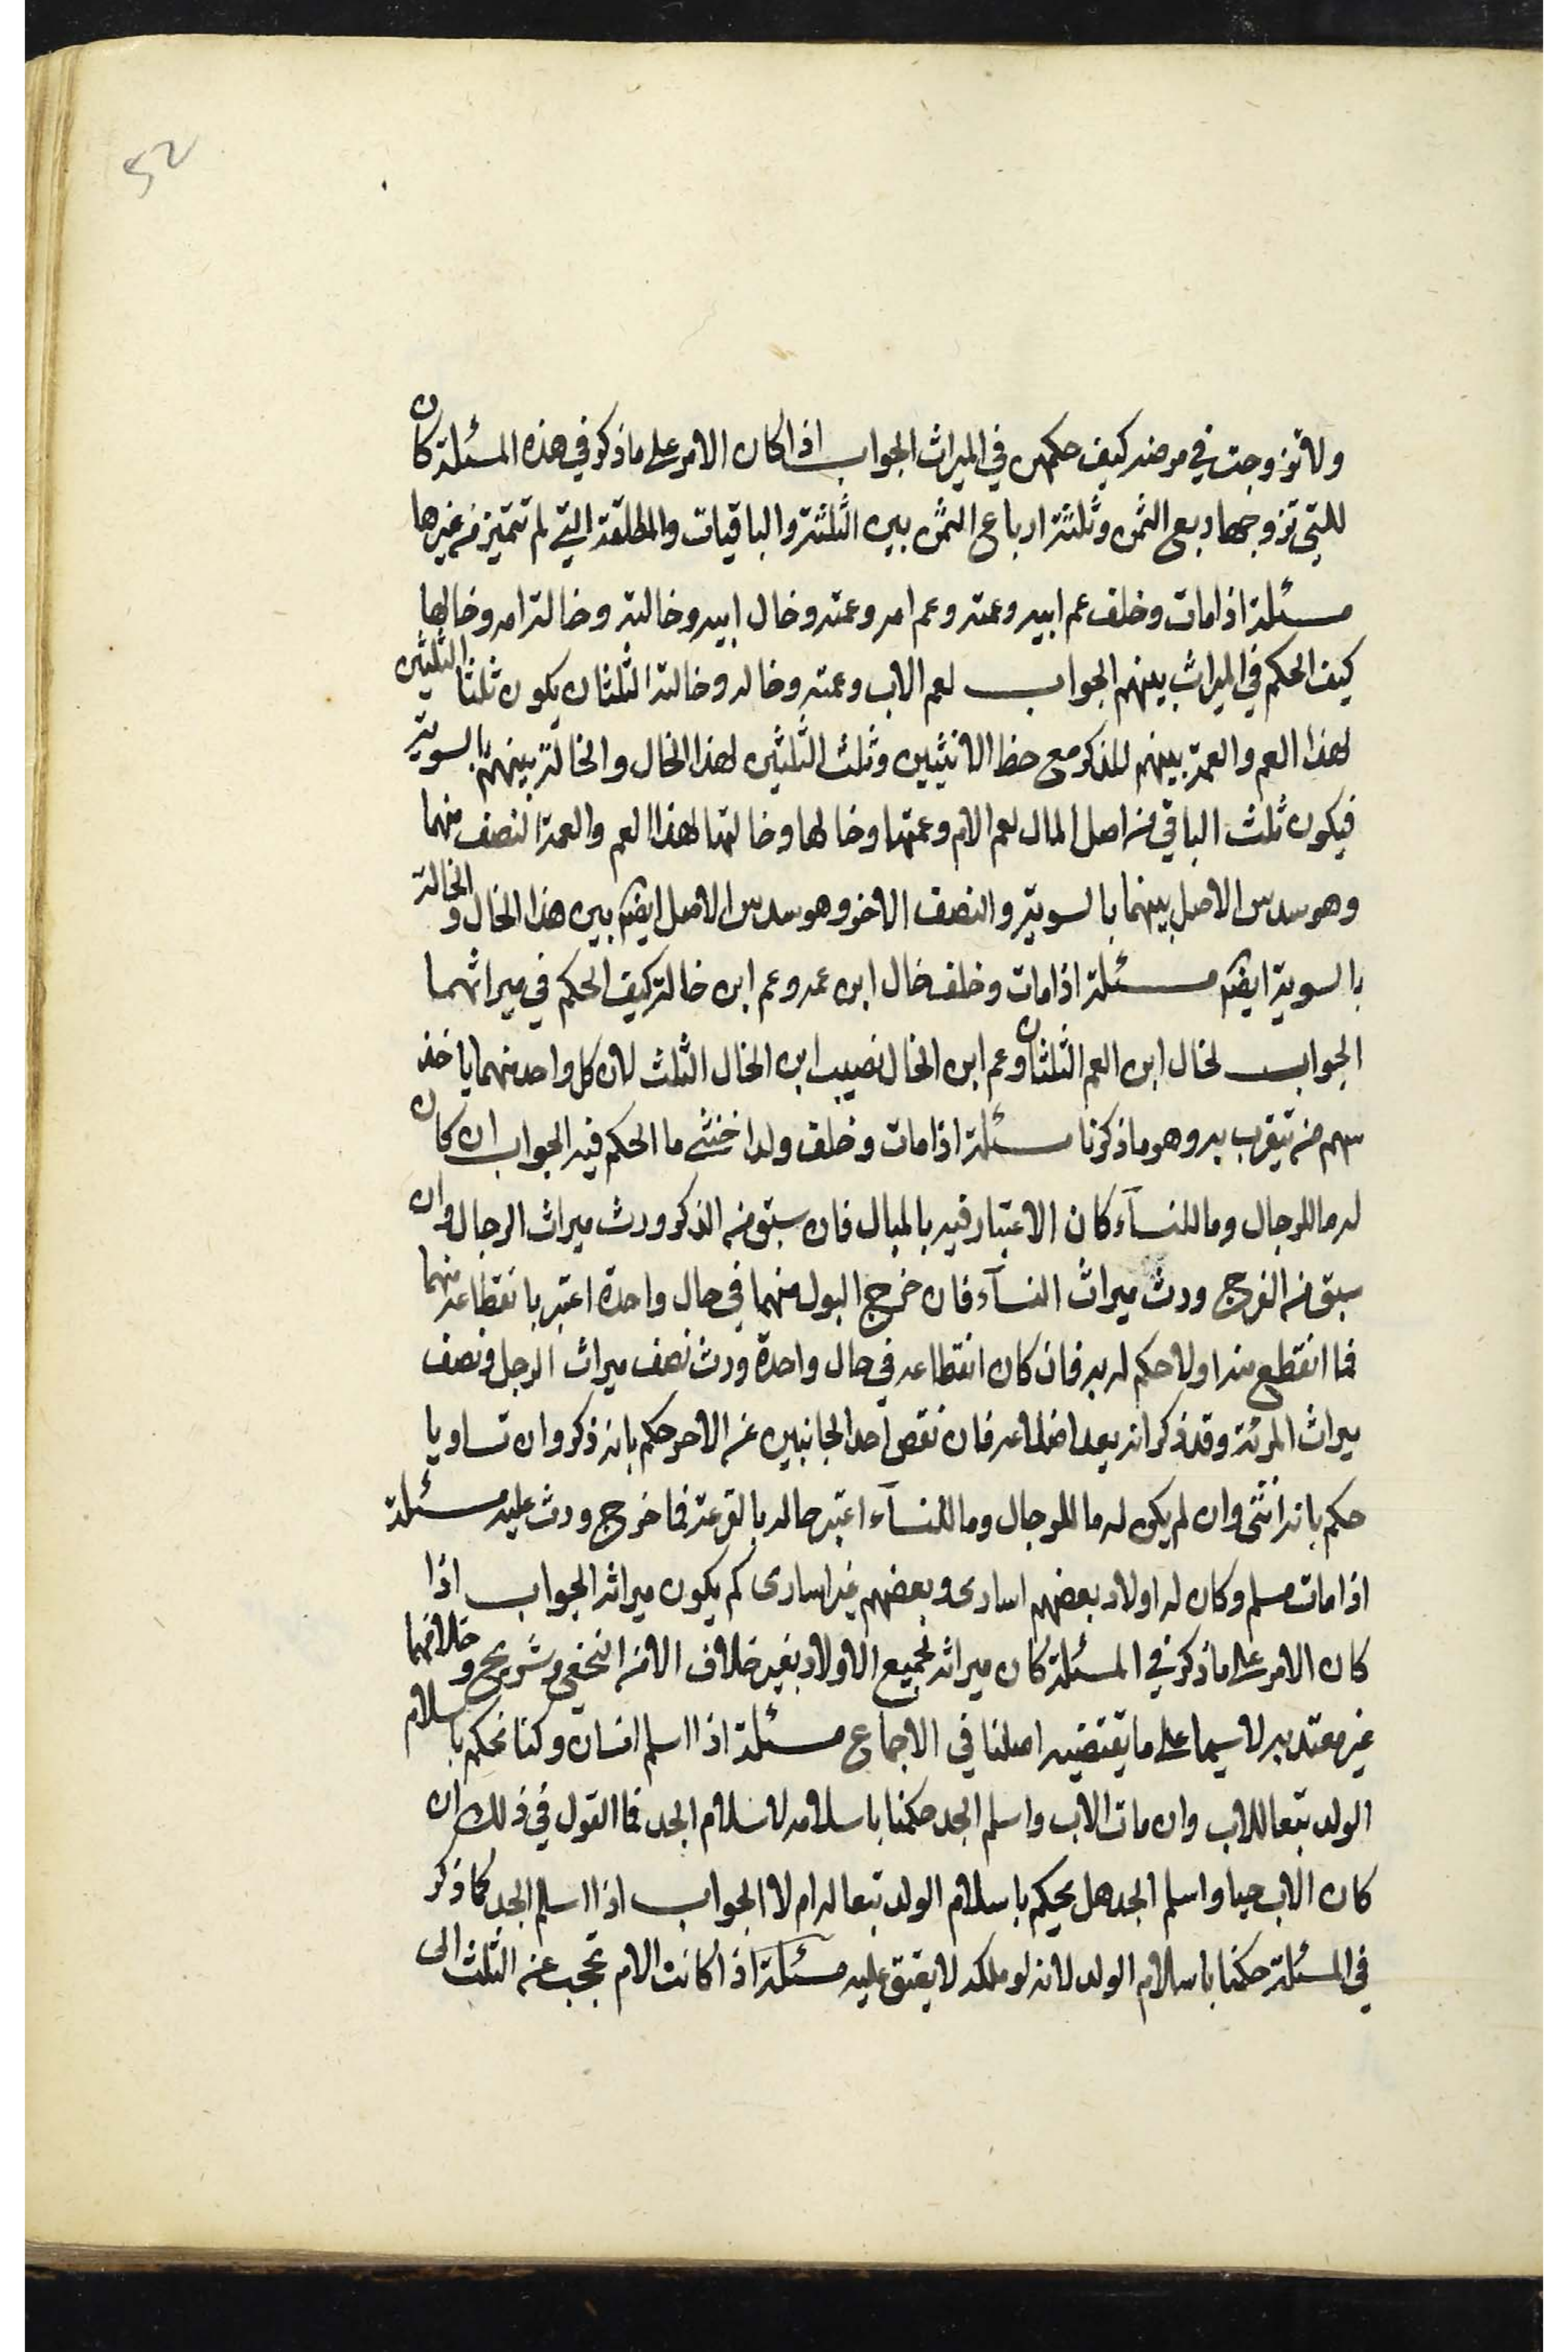 52
ولا تزوجت في مرضه كيف حكمهن في الميراث الجواب اذا كان الامر على ما ذكر في هذه المسئلة كان
للتي تزوجها ربع الثمن وثلثة ارباع الثمن بين الثلثة والباقيات والمطلقة التي لم تتميز من غيرها
مسئلة اذا مات وخلف عم ابيه وعمته وعم امه وعمته وخال ابيه وخالته وخالة امه وخالها
كيف الحكم في الميراث بينهم الجواب لعم الاب وعمته وخاله وخالته الثلثان يكون ثلثا الثلثين
لهذا العم والعمة بينهم للذكر مع حظ الانثيين وثلث الثلثين لهذا الخال والخالة بينهما بالسوية
فيكون ثلث الباقي من اصل المال لعم الام وعمتها وخالها وخالتها لهذا العم والعمة النصف منهما
وهو سدس الاصل بينهما بالسوية والنصف الاخر وهو سدس الاصل ايضا بين هذا الخال والخالة
بالسوية ايضا مسئلة اذا مات وخلف خال ابن عمه وعم ابن خالة كيف الحكم في ميراثهما
الجواب لخال ابن العم الثلثان وعم ابن الخال نصيب ابن الخال الثلث لان كل واحد منهما ياخذ
سهم من يتقرب به وهو ما ذكرنا مسئلة اذا مات وخلف ولدا خنثى ما الحكم فيه الجواب ان كان
له ما للرجال وما للنسآء كان الاعتبار فيه بالمبال فان سبق من الذكر ورث ميراث الرجال وان
سبق من الفرج ورث ميراث النسآء فان خرج البول منهما في حال واحدة اعتبر بانقطاعه منهما
فما انقطع منه اولا حكم له به فان كان انقطاعه في حال واحدة ورث نصف ميراث الرجل ونصف
ميراث المرئة وقد ذكر انه يعد اضلاعه فان نقص احد الجانبين عن الاخر حكم بانه ذكر وان تساويا
حكم بانه انثى وان لم يكن له ما للرجال وما للنسآء اعتبر حاله بالقرعة فما خرج ورث عليه مسئلة
اذا مات مسلم وكان له اولاد بعضهم اسارى وبعضهم غير اسارى كم يكون ميراثه الجواب اذا
كان الامر على ما ذكر في المسئلة كان ميراثه لجميع الاولاد بغير خلاف الا من النخعي وشريح وخلافهما
غير معتد به لا سيما على ما يقتضيه اصلنا في الاجماع مسئلة اذا اسلم انسان وكنا نحكم باسلام
الولد تبعا للاب وان مات الاب واسلم الجد حكمنا باسلامه لاسلام الجد فما القول في ذلك ان
كان الاب حيا واسلم الجد هل يحكم باسلام الولد تبعا له ام لا الجواب اذا اسلم الجد كما ذكر
في المسئلة حكمنا باسلام الولد لانه لو ملكه لا يعتق عليه مسئلة اذا كانت الام تحجب عن الثلث الى